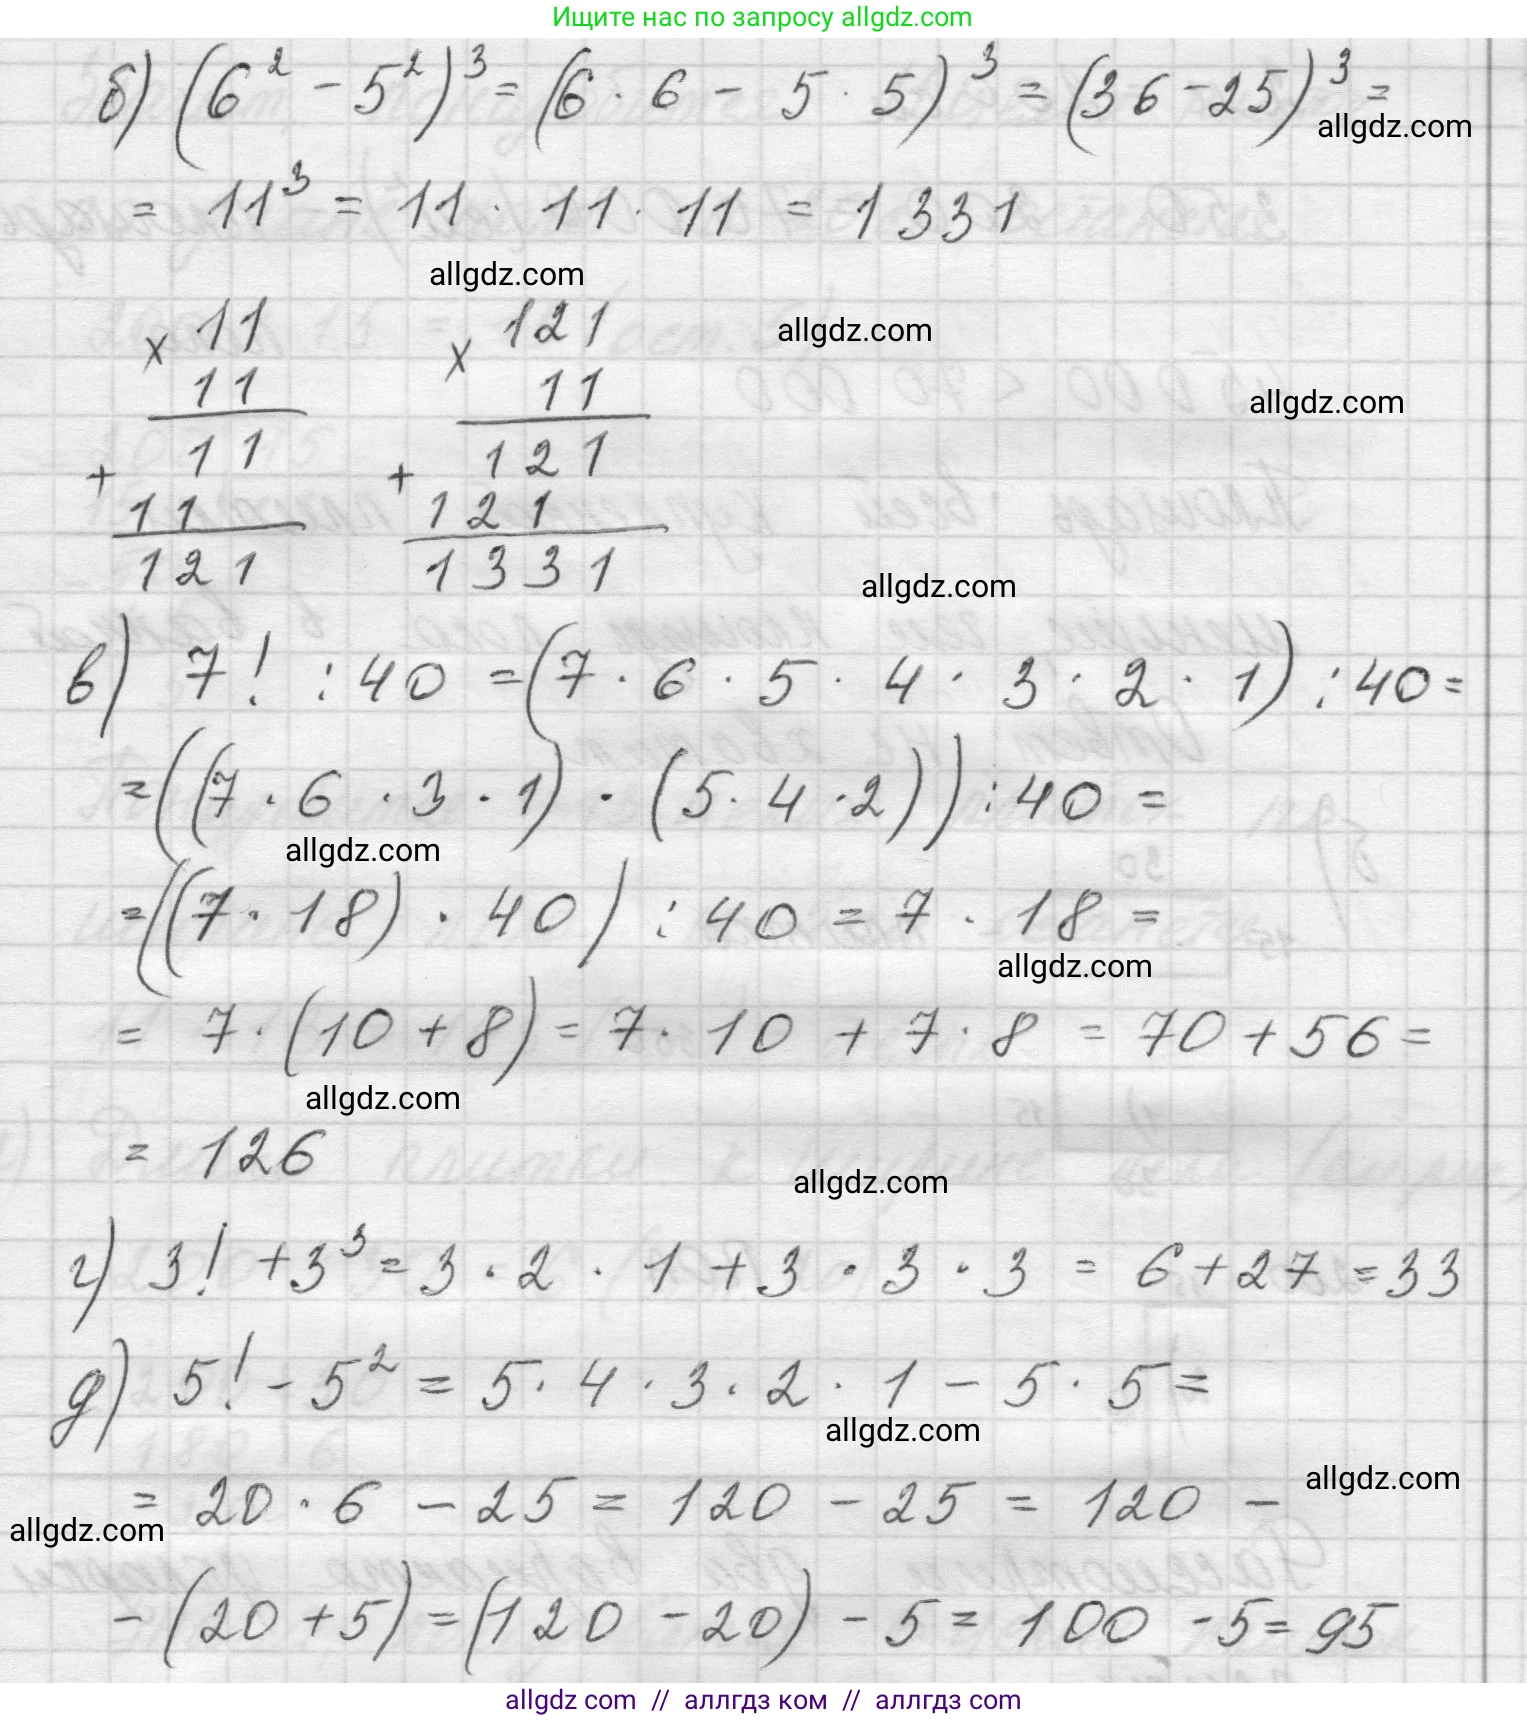 Ищите нас по запросу allgdz.com
б) (6² - 5²)³ = (6 · 6 - 5 · 5)³ = (36 - 25)³ =
allgdz.com
= 11³ = 11 · 11 · 11 = 1331
allgdz.com
× 11   × 121
allgdz.com
11   11
allgdz.com
11   121
+   +
11   121
121   1331
allgdz.com
в) 7! : 40 = (7 · 6 · 5 · 4 · 3 · 2 · 1) : 40 =
= ((7 · 6 · 3 · 1) · (5 · 4 · 2)) : 40 =
allgdz.com
= ((7 · 18) · 40) : 40 = 7 · 18 =
allgdz.com
= 7 · (10 + 8) = 7 · 10 + 7 · 8 = 70 + 56 =
allgdz.com
= 126
allgdz.com
г) 3! + 3³ = 3 · 2 · 1 + 3 · 3 · 3 = 6 + 27 = 33
д) 5! - 5² = 5 · 4 · 3 · 2 · 1 - 5 · 5 =
allgdz.com
allgdz.com
= 20 · 6 - 25 = 120 - 25 = 120 -
allgdz.com
- (20 + 5) = (120 - 20) - 5 = 100 - 5 = 95
allgdz com // аллгдз ком // аллгдз com